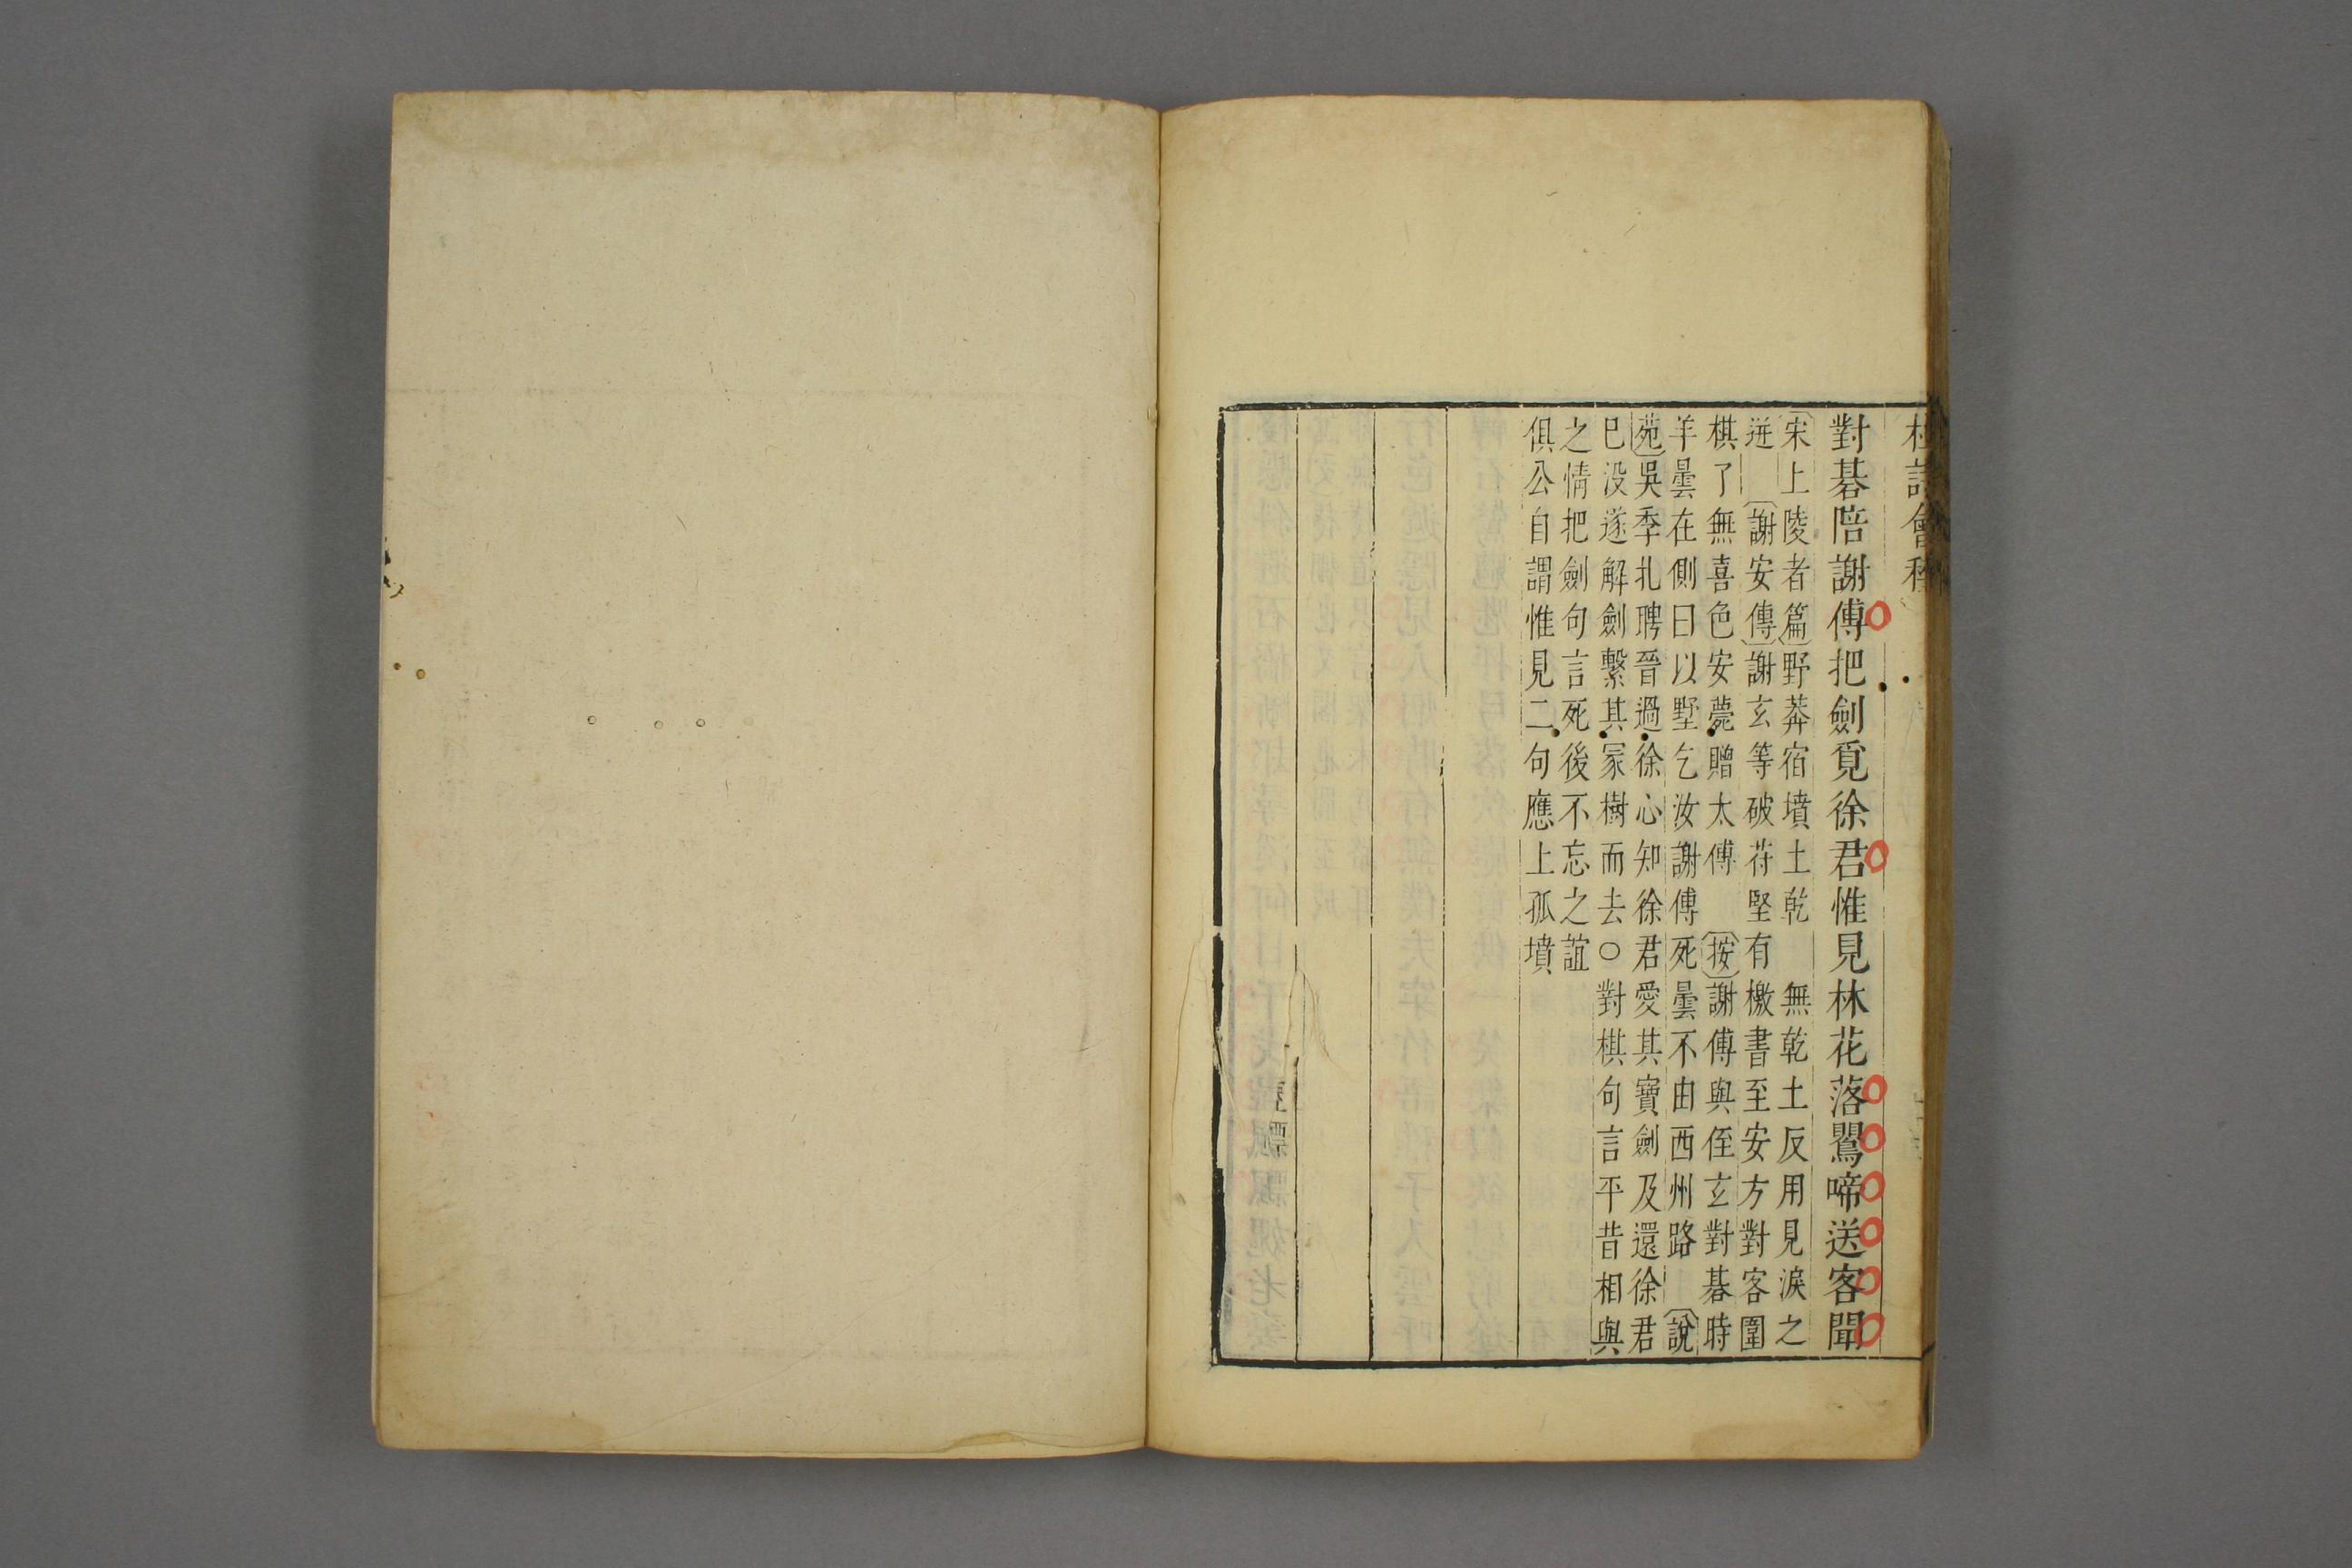 杜詩會稡
對碁陪謝傅把劍覓徐君惟見林花落鸎啼送客聞
宋上陵者篇野莽宿墳土乾 無乾土反用見淚之
迸 謝安傳謝玄等破苻堅有檄書至安方對客圍
棋了無喜色安薨贈太傅 按謝傅與侄玄對碁時
羊曇在側曰以墅乞汝謝傅死曇不由西州路 說
苑吳季扎聘晉過徐心知徐君愛其寶劍及還徐君
巳没遂解劍繫其冢樹而去○對棋句言平昔相與
之情把劍句言死後不忘之誼
俱公自謂惟見二句應上孤墳